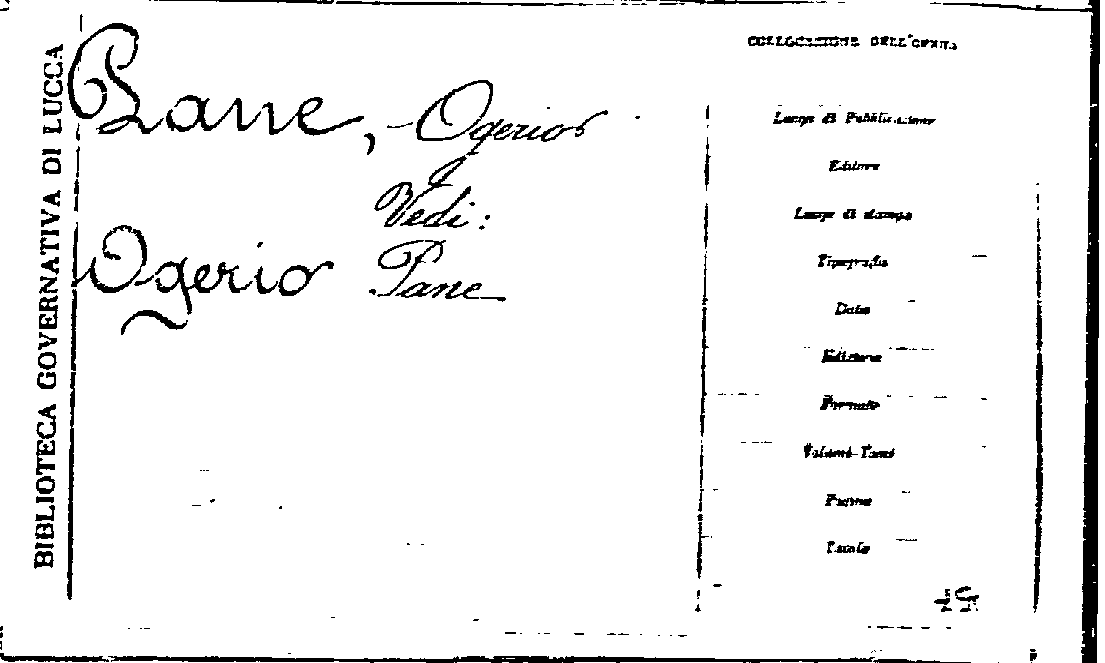 BIBLIOTECA GOVERNATIVA DI LUCCA
Pane, - Ogerio
Vedi:
Ogerio Pane
COLLOCAZIONE DELL'OPERA
Luogo di Pubblicazione
Editore
Luogo di stampa
Tipografia
Data
Edizione
Formato
Volumi-Tomi
Pagine
Tavole